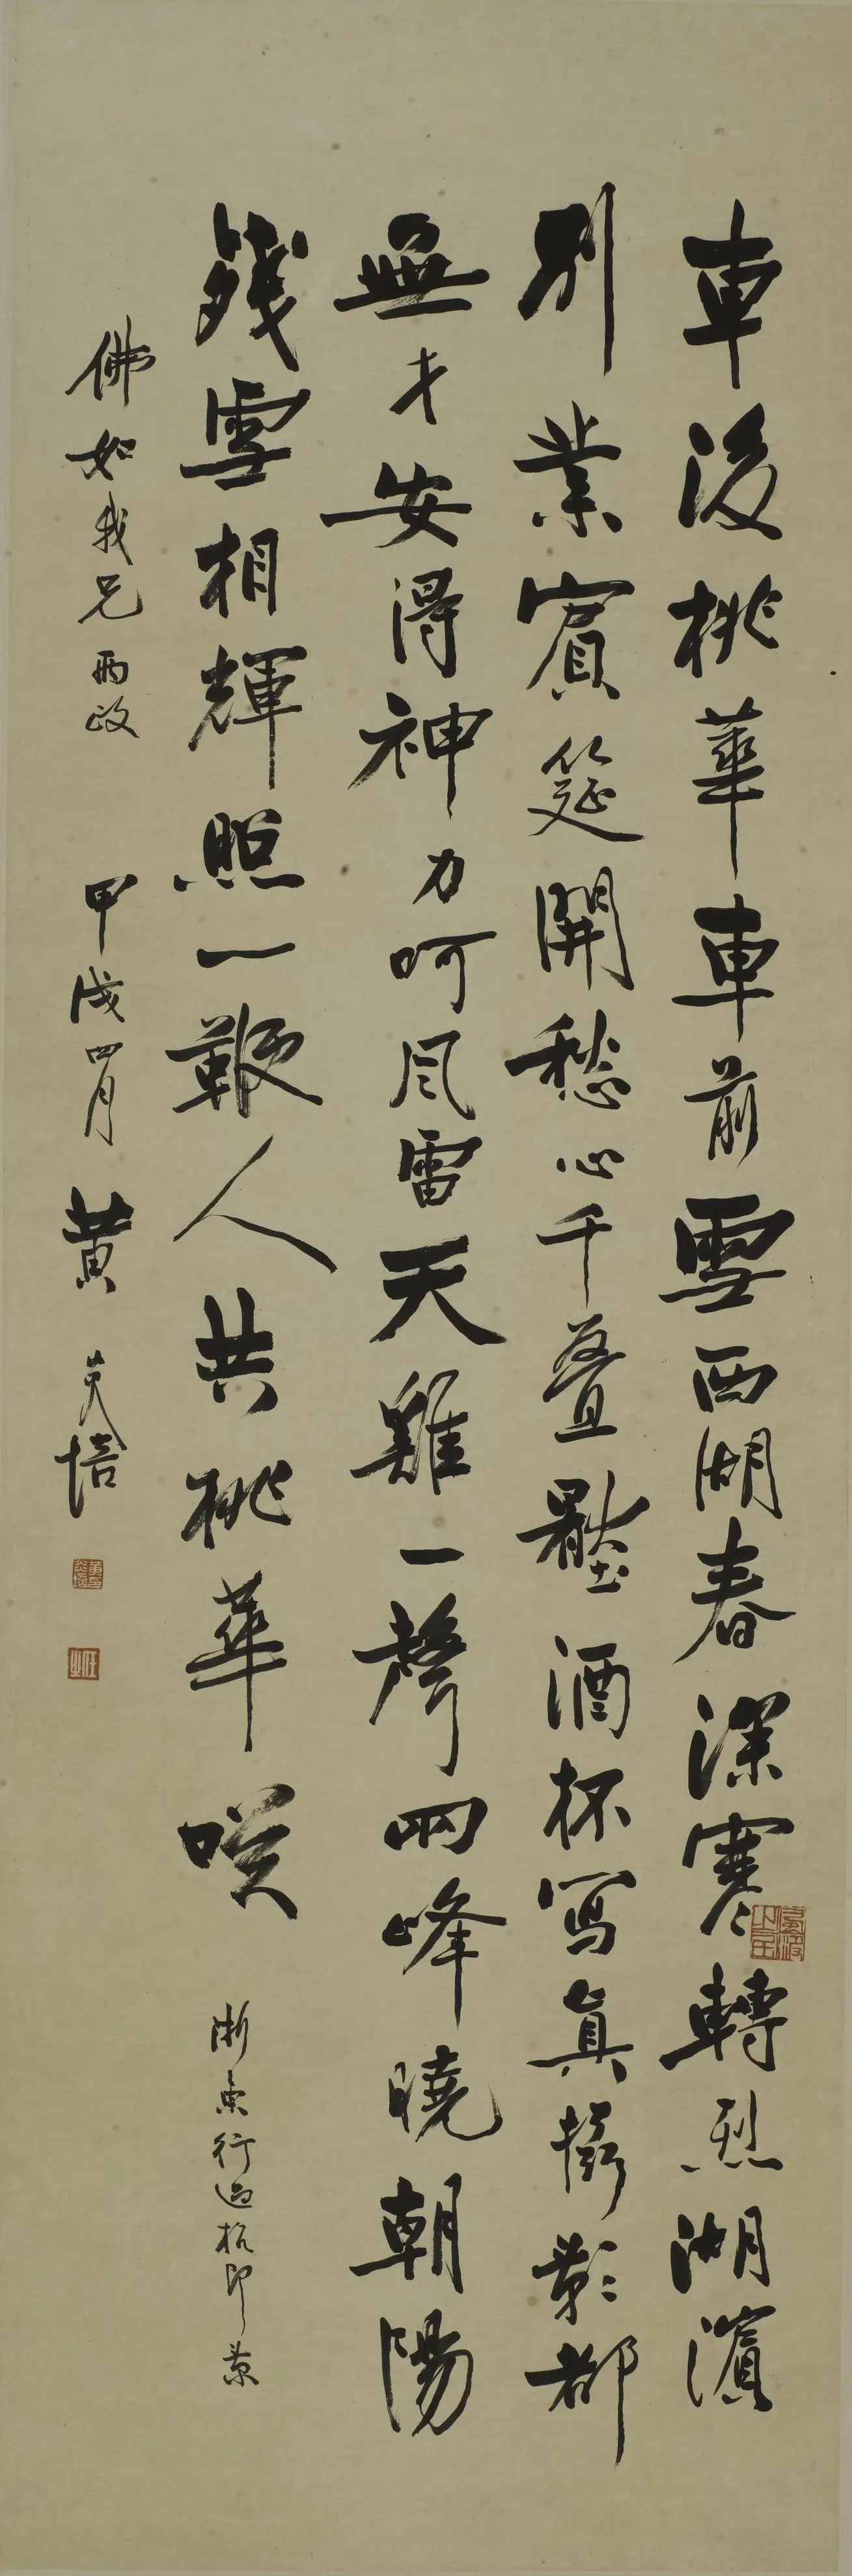 車後桃華車前雪西湖春深寒轉烈湖濱
別業賓筵開愁心千疊壘酒杯寫真攝影都
無才安得神力呵風雷天雞一聲兩峰曉朝陽
殘雪相輝照一鞭人共桃華咲
浙東行過杭即景
佛如我兄兩政
甲戌四月
黃炎培